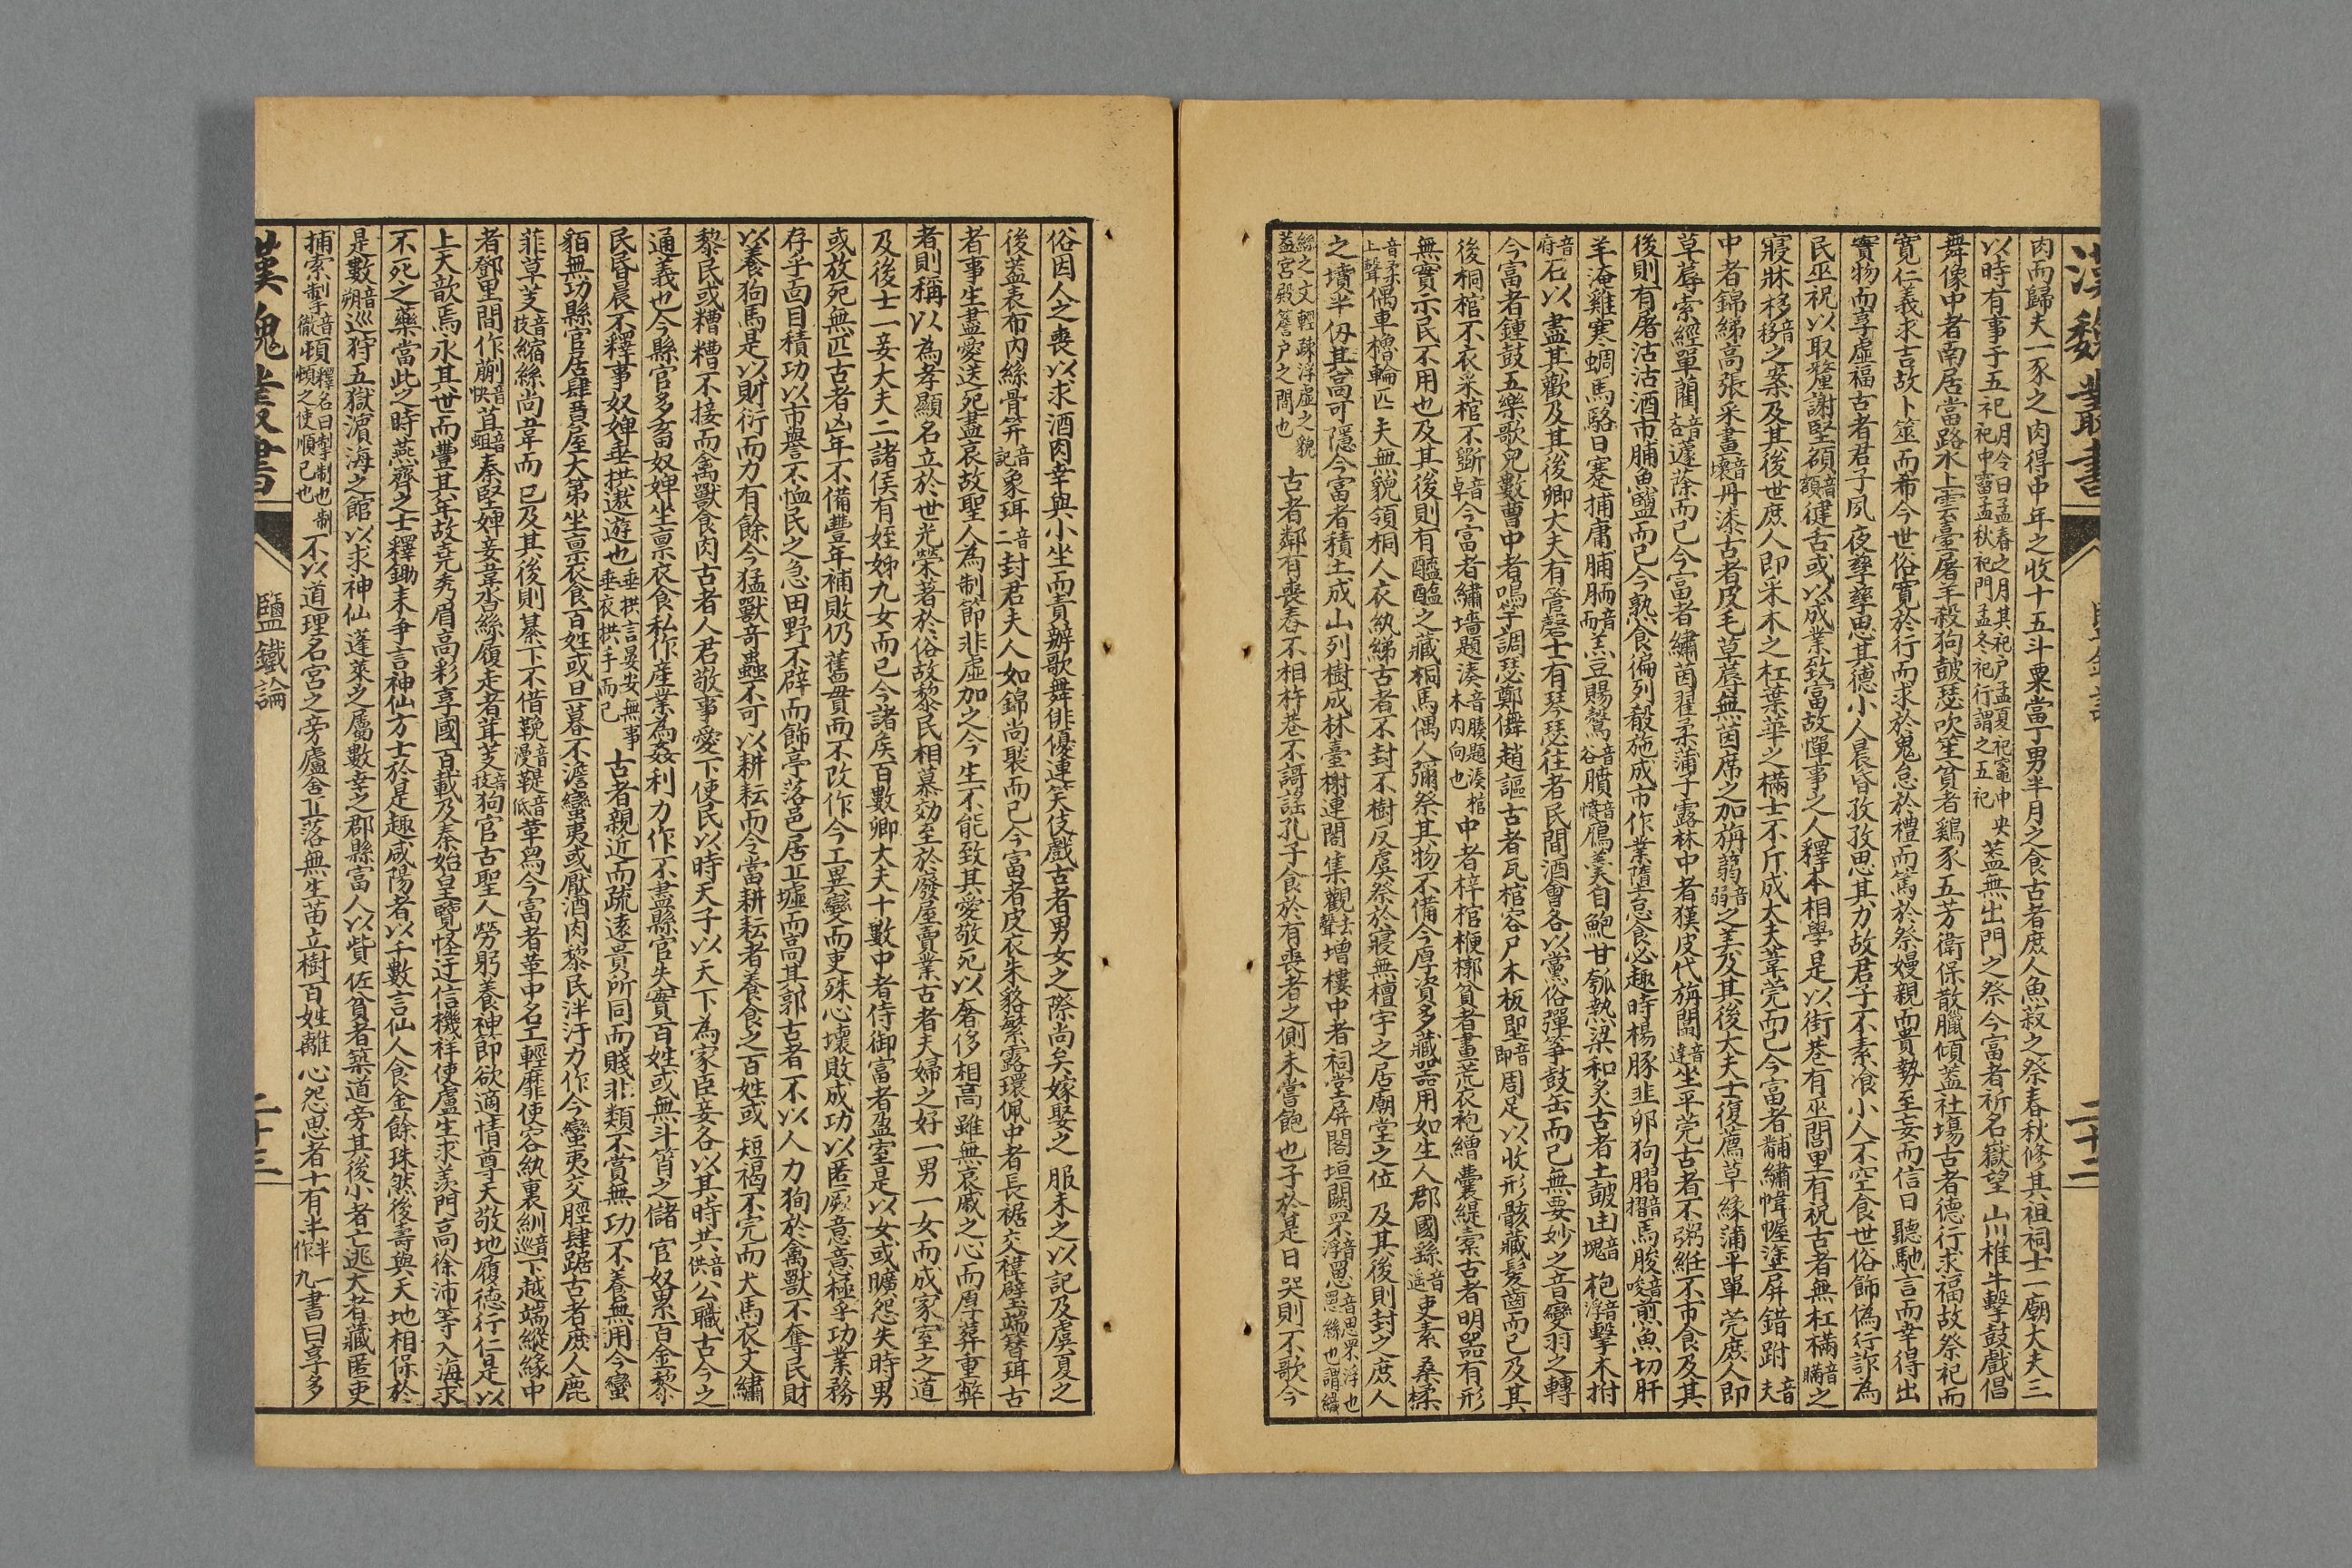 漢魏叢書
二十二
肉而歸夫一豕之肉得中年之收十五斗粟當丁男半月之食古者庶人魚菽之祭春秋修其祖祠士一廟大夫三
以時有事于五祀月令曰孟春之月其祀户孟夏祀竈中央祀中霤孟秋祀門孟冬祀行謂之五祀蓋無出門之祭今富者祈名嶽望山川椎牛擊鼓戲倡
舞像中者南居當路水上雲臺屠羊殺狗鼓瑟吹笙貧者鷄豕五芳衛保散臘傾蓋社場古者德行求福故祭祀而
寬仁義求吉故卜筮而希今世俗寬於行而求於鬼怠於禮而篤於祭嫚親而貴勢至妄而信日聽馳言而幸得出
實物而享虛福古者君子夙夜孳孳思其德小人晨昏孜孜思其力故君子不素飡小人不空食世俗飾偽行詐為
民巫祝以取釐謝堅頟音額健舌或以成業致富故憚事之人釋本相學是以街巷有巫閭里有祝古者無杠樠音瞞之
寢牀移音移之案及其後世庶人即采木之杠葉華之樠士不斤成大夫葦莞而已今富者黼繡幃幄塗屏錯跗音夫
中者錦綈高張采畫音壞丹漆古者皮毛草蓐無茵席之加旃蒻音弱之美及其後大夫士復薦草緣蒲平單莞庶人即
草蓐索經單藺音吝蘧蒢而已今富者繡茵翟柔蒲子露林中者獏皮代旃闒音達坐平莞古者不粥紝不市食及其
後則有屠沽沽酒市脯魚鹽而已今熟食徧列殽施成市作業墮怠食必趣時楊豚韭卵狗䐑音摺馬朘音唆煎魚切肝
羊淹雞寒蜩馬駱日蹇捕庸脯胹音而羔豆賜鷇音谷膹音憤鴈羹自鮑甘瓠熱粱和炙古者土鼓凷音塊枹音浮擊木拊
音府石以盡其歡及其後卿大夫有管磬士有琴瑟往者民間酒會各以黨俗彈箏鼓缶而已無要妙之音變羽之轉
今富者鐘鼓五樂歌兒數曹中者鳴竽調瑟鄭儛趙謳古者瓦棺容尸木板堲音即周足以收形骸藏髮齒而已及其
後桐棺不衣采棺不斲音卓今富者繡墻題湊音腠題湊棺木内向也中者梓棺楩槨貧者畫荒衣袍繒囊緹橐古者明器有形
無實示民不用也及其後則有醯醢之藏桐馬偶人彌祭其物不備今厚資多藏器用如生人郡國繇音遥吏素桑楺
音柔上聲偶車櫓輪匹夫無貌領桐人衣紈綈古者不封不樹反虞祭於寢無檀宇之居廟堂之位及其後則封之庶人
之墳半仭其高可隱今富者積土成山列樹成林臺榭連閣集觀去聲增樓中者祠堂屏閤垣闕罘音浮罳音思罘浮也罳絲也謂織
絲之文輕疎浮虛之貌蓋宮殿簷户之間也古者鄰有喪舂不相杵巷不謌謡孔子食於有喪者之側未嘗飽也子於是日哭則不歌今
俗因人之喪以求酒肉幸與小坐而責辦歌舞俳優連笑伎戲古者男女之際尚矣嫁娶之服未之以記及虞夏之
後蓋表布内絲骨笄音記象珥音二封君夫人如錦尚褧而已今富者皮衣朱貉繁露環佩中者長裾交褘璧端簪珥古
者事生盡愛送死盡哀故聖人為制節非虛加之今生不能致其愛敬死以奢侈相高雖無哀戚之心而厚葬重弊
者則稱以為孝顯名立於世光榮著於俗故黎民相慕効至於廢屋賣業古者夫婦之好一男一女而成家室之道
及後士一妾大夫二諸侯有姪娣九女而已今諸矦百數卿大夫十數中者侍御富者盈室是以女或曠怨失時男
或放死無匹古者凶年不備豐年補敗仍舊貫而不改作今工異變而吏殊心壞敗成功以匿厥意意極乎功業務
存乎面目積功以市譽不恤民之急田野不辟而飾亭落邑居丘墟而高其郭古者不以人力狥於禽獸不奪民財
以養狗馬是以財衍而力有餘今猛獸奇蟲不可以耕耘而今當耕耘者養食之百姓或短褐不完而犬馬衣文繡
黎民或糟糟不接而禽獸食肉古者人君敬事愛下使民以時天子以天下為家臣妾各以其時共音供公職古今之
通義也今縣官多畜奴婢坐禀衣食私作産業為姦利力作不盡縣官失實百姓或無斗筲之儲官奴累百金黎
民昏晨不釋事奴婢垂拱遨遊也垂拱言晏安無事垂衣拱手而已古者親近而疏遠貴所同而賤非類不賞無功不養無用今蠻
貊無功縣官居肆吾屋大第坐禀衣食百姓或旦暮不澹蠻夷或厭酒肉黎民泮汗力作今蠻夷交脛肆踞古者庶人鹿
菲草芰音技縮絲尚韋而已及其後則綦下不借鞔音漫鞮音低革舄今富者革中名工輕靡使容紈裏紃音巡下越端縱緣中
者鄧里間作蒯音快苴音蛆秦堅婢妾韋沓絲履走者茸芰音技狗官古聖人勞躬養神節欲適情尊天敬地履德行仁是以
上天歆焉永其世而豐其年故堯秀眉高彩享國百載及秦始皇覽怪迂信機祥使盧生求羨門高徐沛等入海求
不死之藥當此之時燕齊之士釋鋤耒争言神仙方士於是趣咸陽者以千數言仙人食金飲珠然後壽與天地相保於
是數音朔巡狩五嶽濱海之館以求神仙蓬萊之屬數幸之郡縣富人以貲佐貧者築道旁其後小者亡逃大者藏匿吏
捕索掣音徹頓釋名曰掣制也制頓之使順已也不以道理名宮之旁廬舍丘落無生苗立樹百姓離心怨思者十有半半一作九書曰享多
漢魏叢書
鹽鐵論
二十三